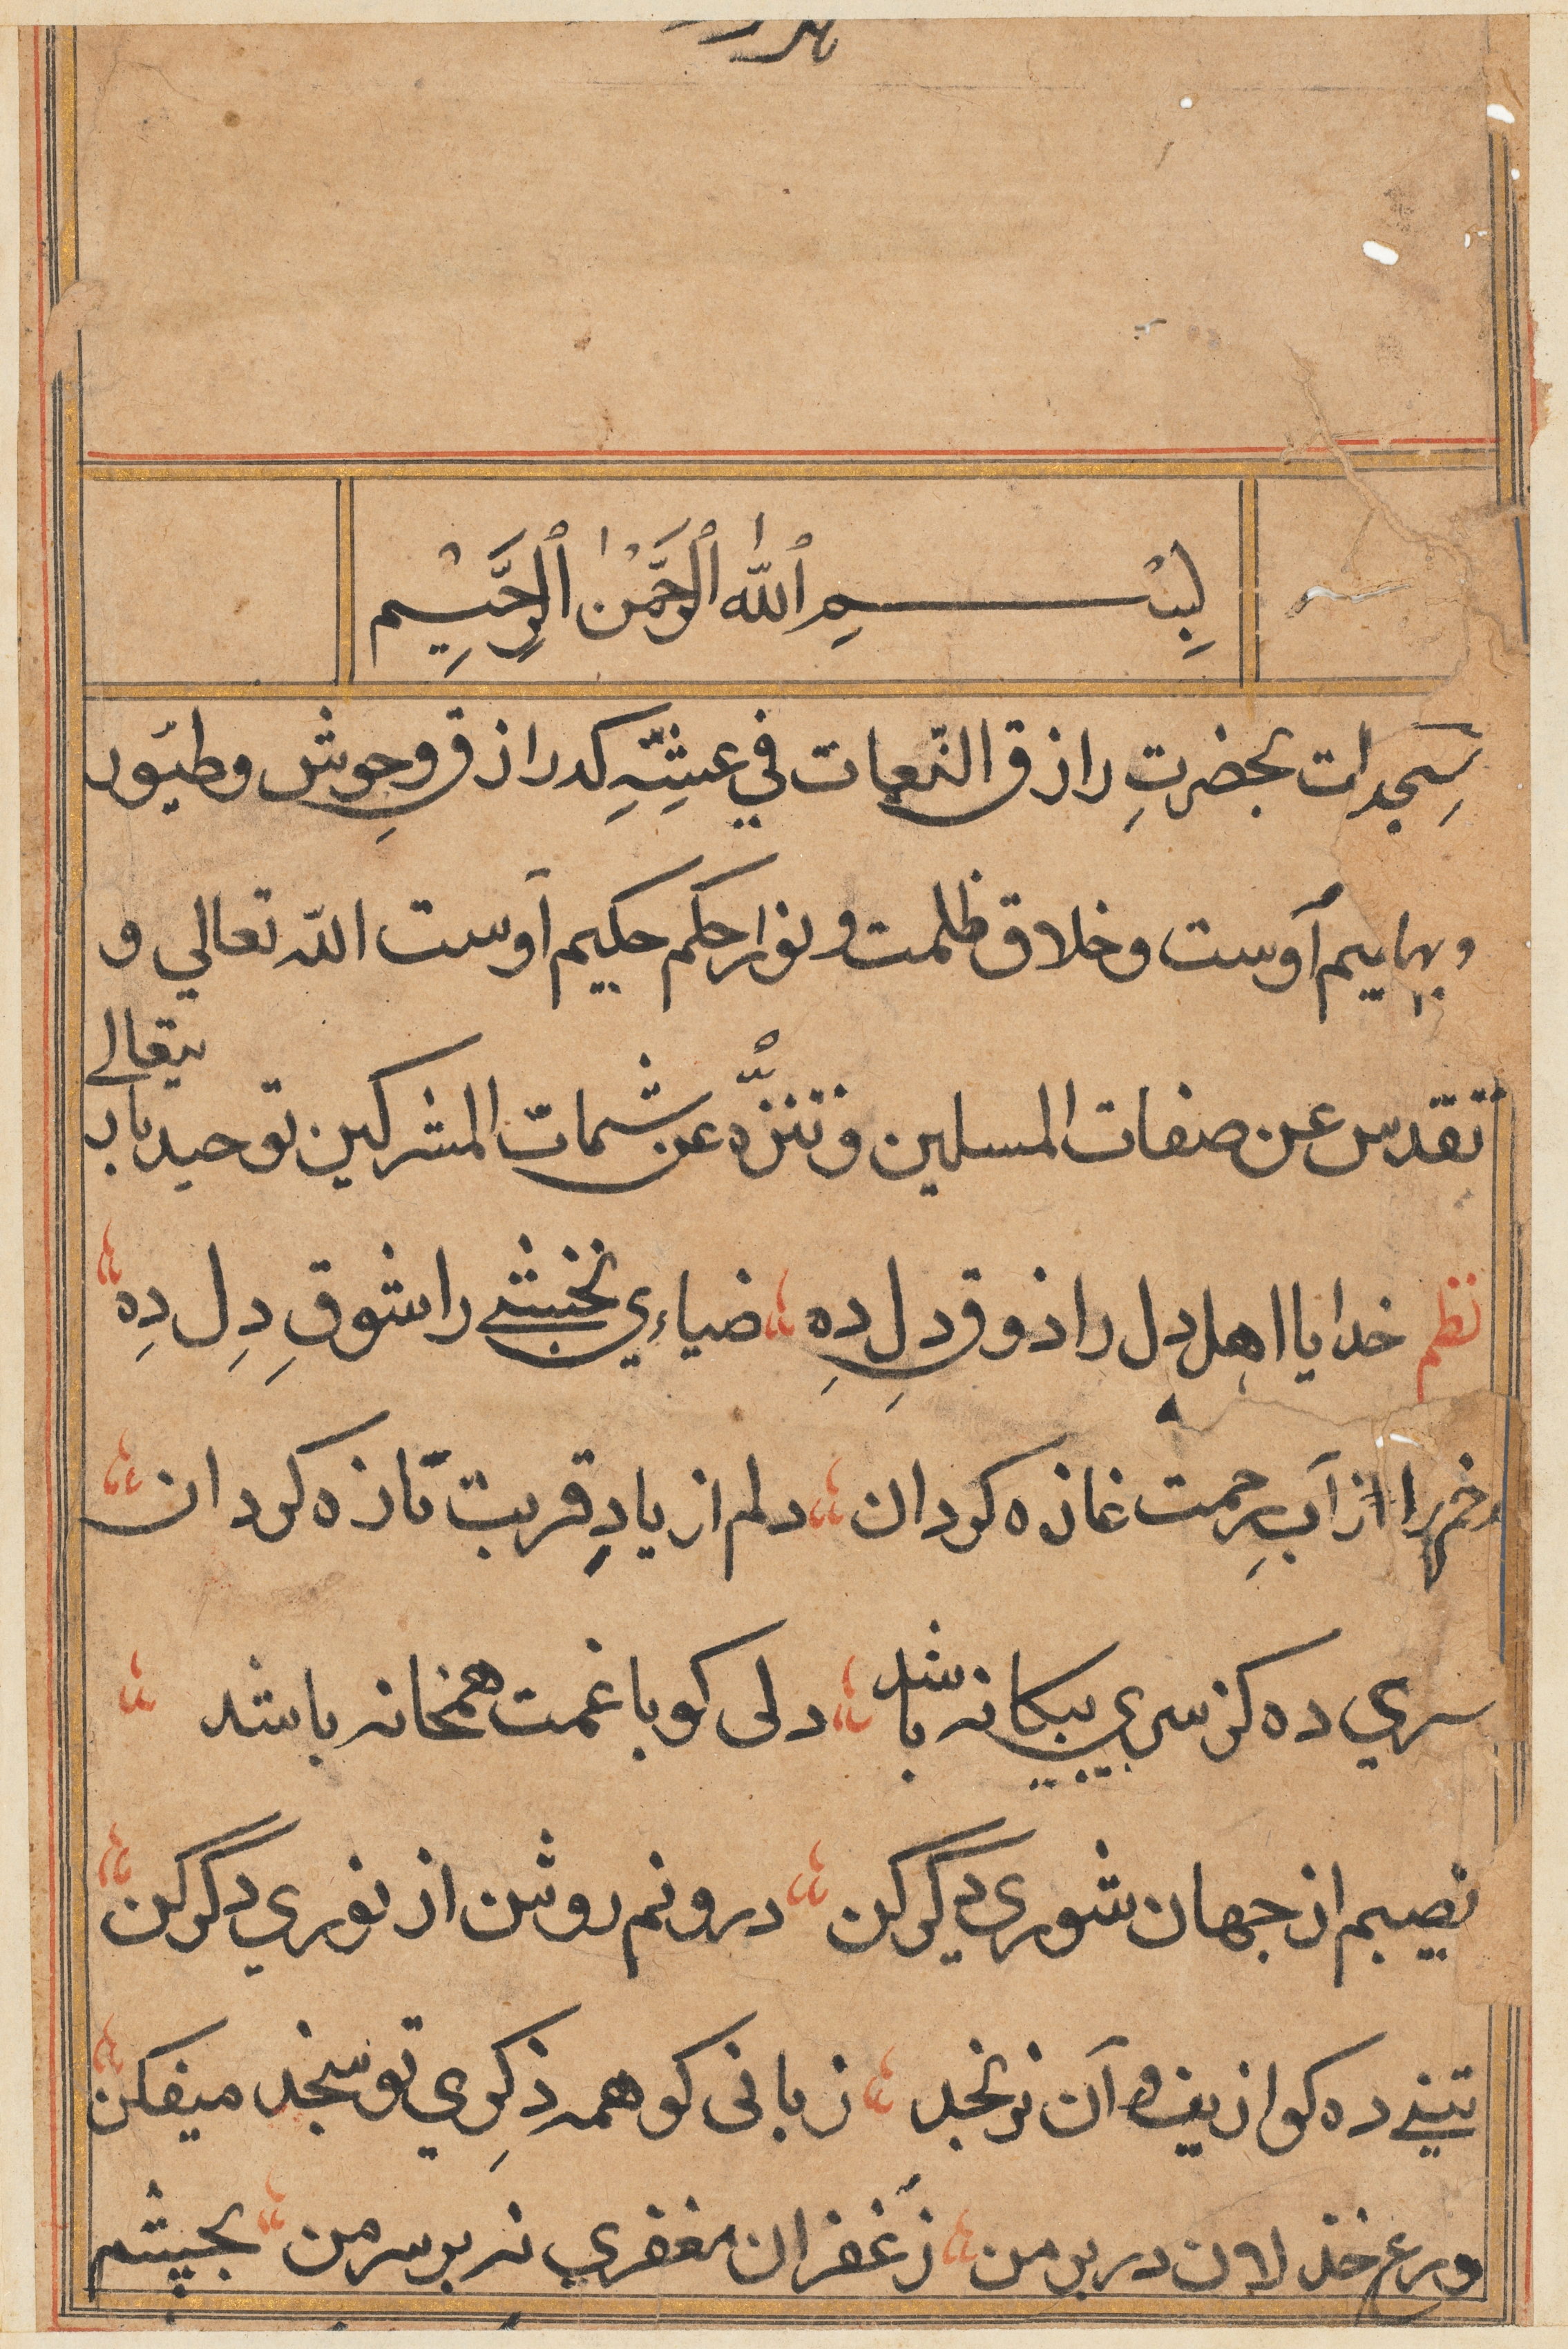 بِسْمِ ٱللّٰه ٱلرَّحْمٰن ٱلرَّحِيْم
سجدات بحضرتِ رازق النّعمات في عيشِهِ كه رازق وحوش وطيور
وبهايم اوست وخلاق ظلمت و نور از حكم حكيم اوست الله تعالي و
تقدس عن صفات المسلمين وتنزّه عن شمات المشركين توحيد بار
يتعالے
نظم خدايا اهل دل را ذوق دل ده ضياءي نخشبے را شوقِ دِل دِه
رخم را از آبِ رحمت غازه كردان دلم از يادِ قربت تازه كردان
سري ده كز سري بيكانه باشد دلى كو با غمت همخانه باشد
نصيبم از جهان شوري ديگر كن درونم روشن از نوري دگر كن
تنے ده كو از ين و آن نرنجد زبانى كو همه ذكِري تو سنجد ميفكن
ورع خذلان در بر من ز غفران مغفري نه بر سر من بچشم